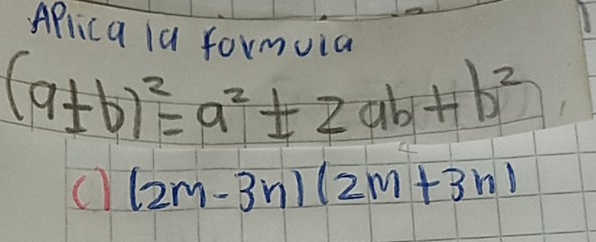 Aplica la formula
(a±b)²=a² ± 2ab+b²
c) (2m-3n)(2m+3n)